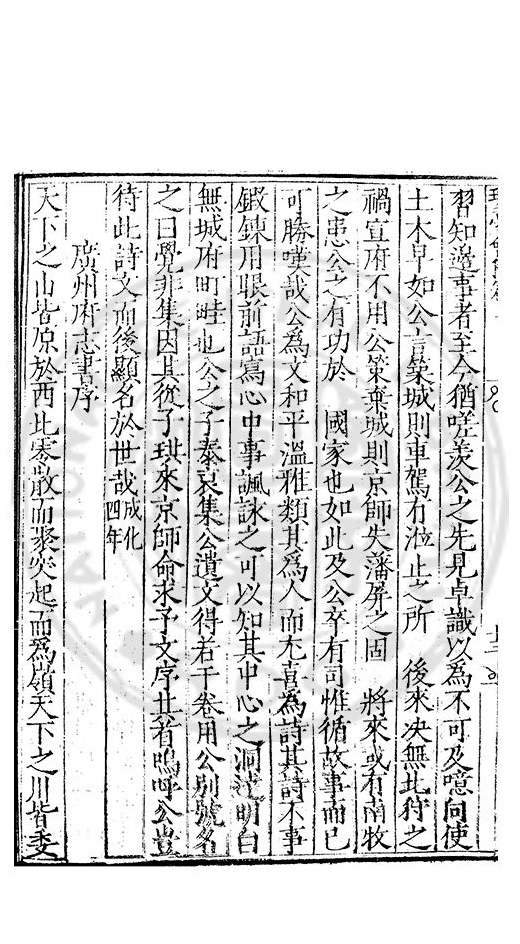 習知邊事者至今猶嗟羨公之先見卓識以爲不可及噫向使
土木早如公言築城則車駕有涖止之所　後來決無北狩之
禍宣府不用公策棄城則京師失藩屏之固　將來或有南牧
之患公之有功於　國家也如此及公卒有司惟循故事而已
可勝嘆哉公爲文和平溫雅類其爲人而尤喜爲詩其詩不事
鍛鍊用眼前語寫心中事諷詠之可以知其中心之洞達明白
無城府町畦也公之子泰裒集公遺文得若干卷用公別號名
之曰覺非集因其從子珙來京師命求予文序其首嗚呼公豈
待此詩文而後顯名於世哉成化四年
廣州府志書序
天下之山皆原於西北零散而聚突起而爲嶺天下之川皆委